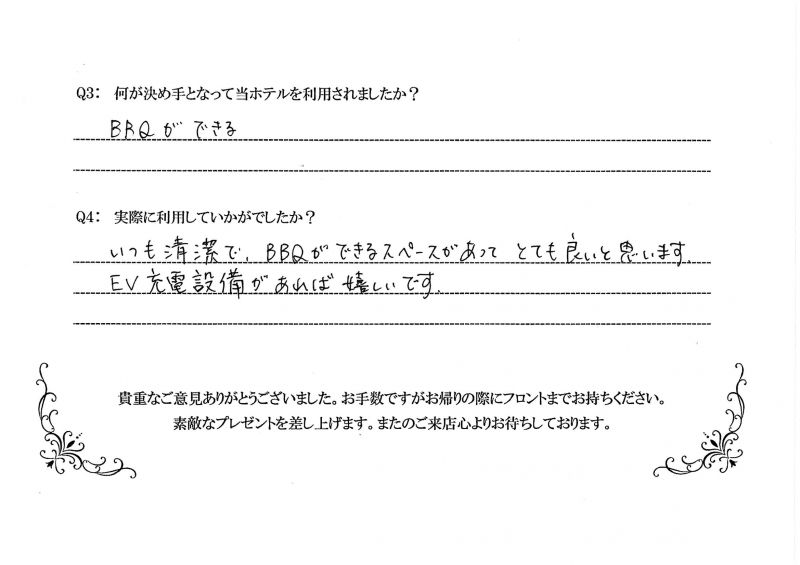 Q3: 何が決め手となって当ホテルを利用されましたか?
BBQができる
Q4: 実際に利用していかがでしたか?
いつも清潔で、BBQができるスペースがあって とても良いと思います。
EV充電設備があれば嬉しいです。
貴重なご意見ありがとうございました。お手数ですがお帰りの際にフロントまでお持ちください。
素敵なプレゼントを差し上げます。またのご来店心よりお待ちしております。